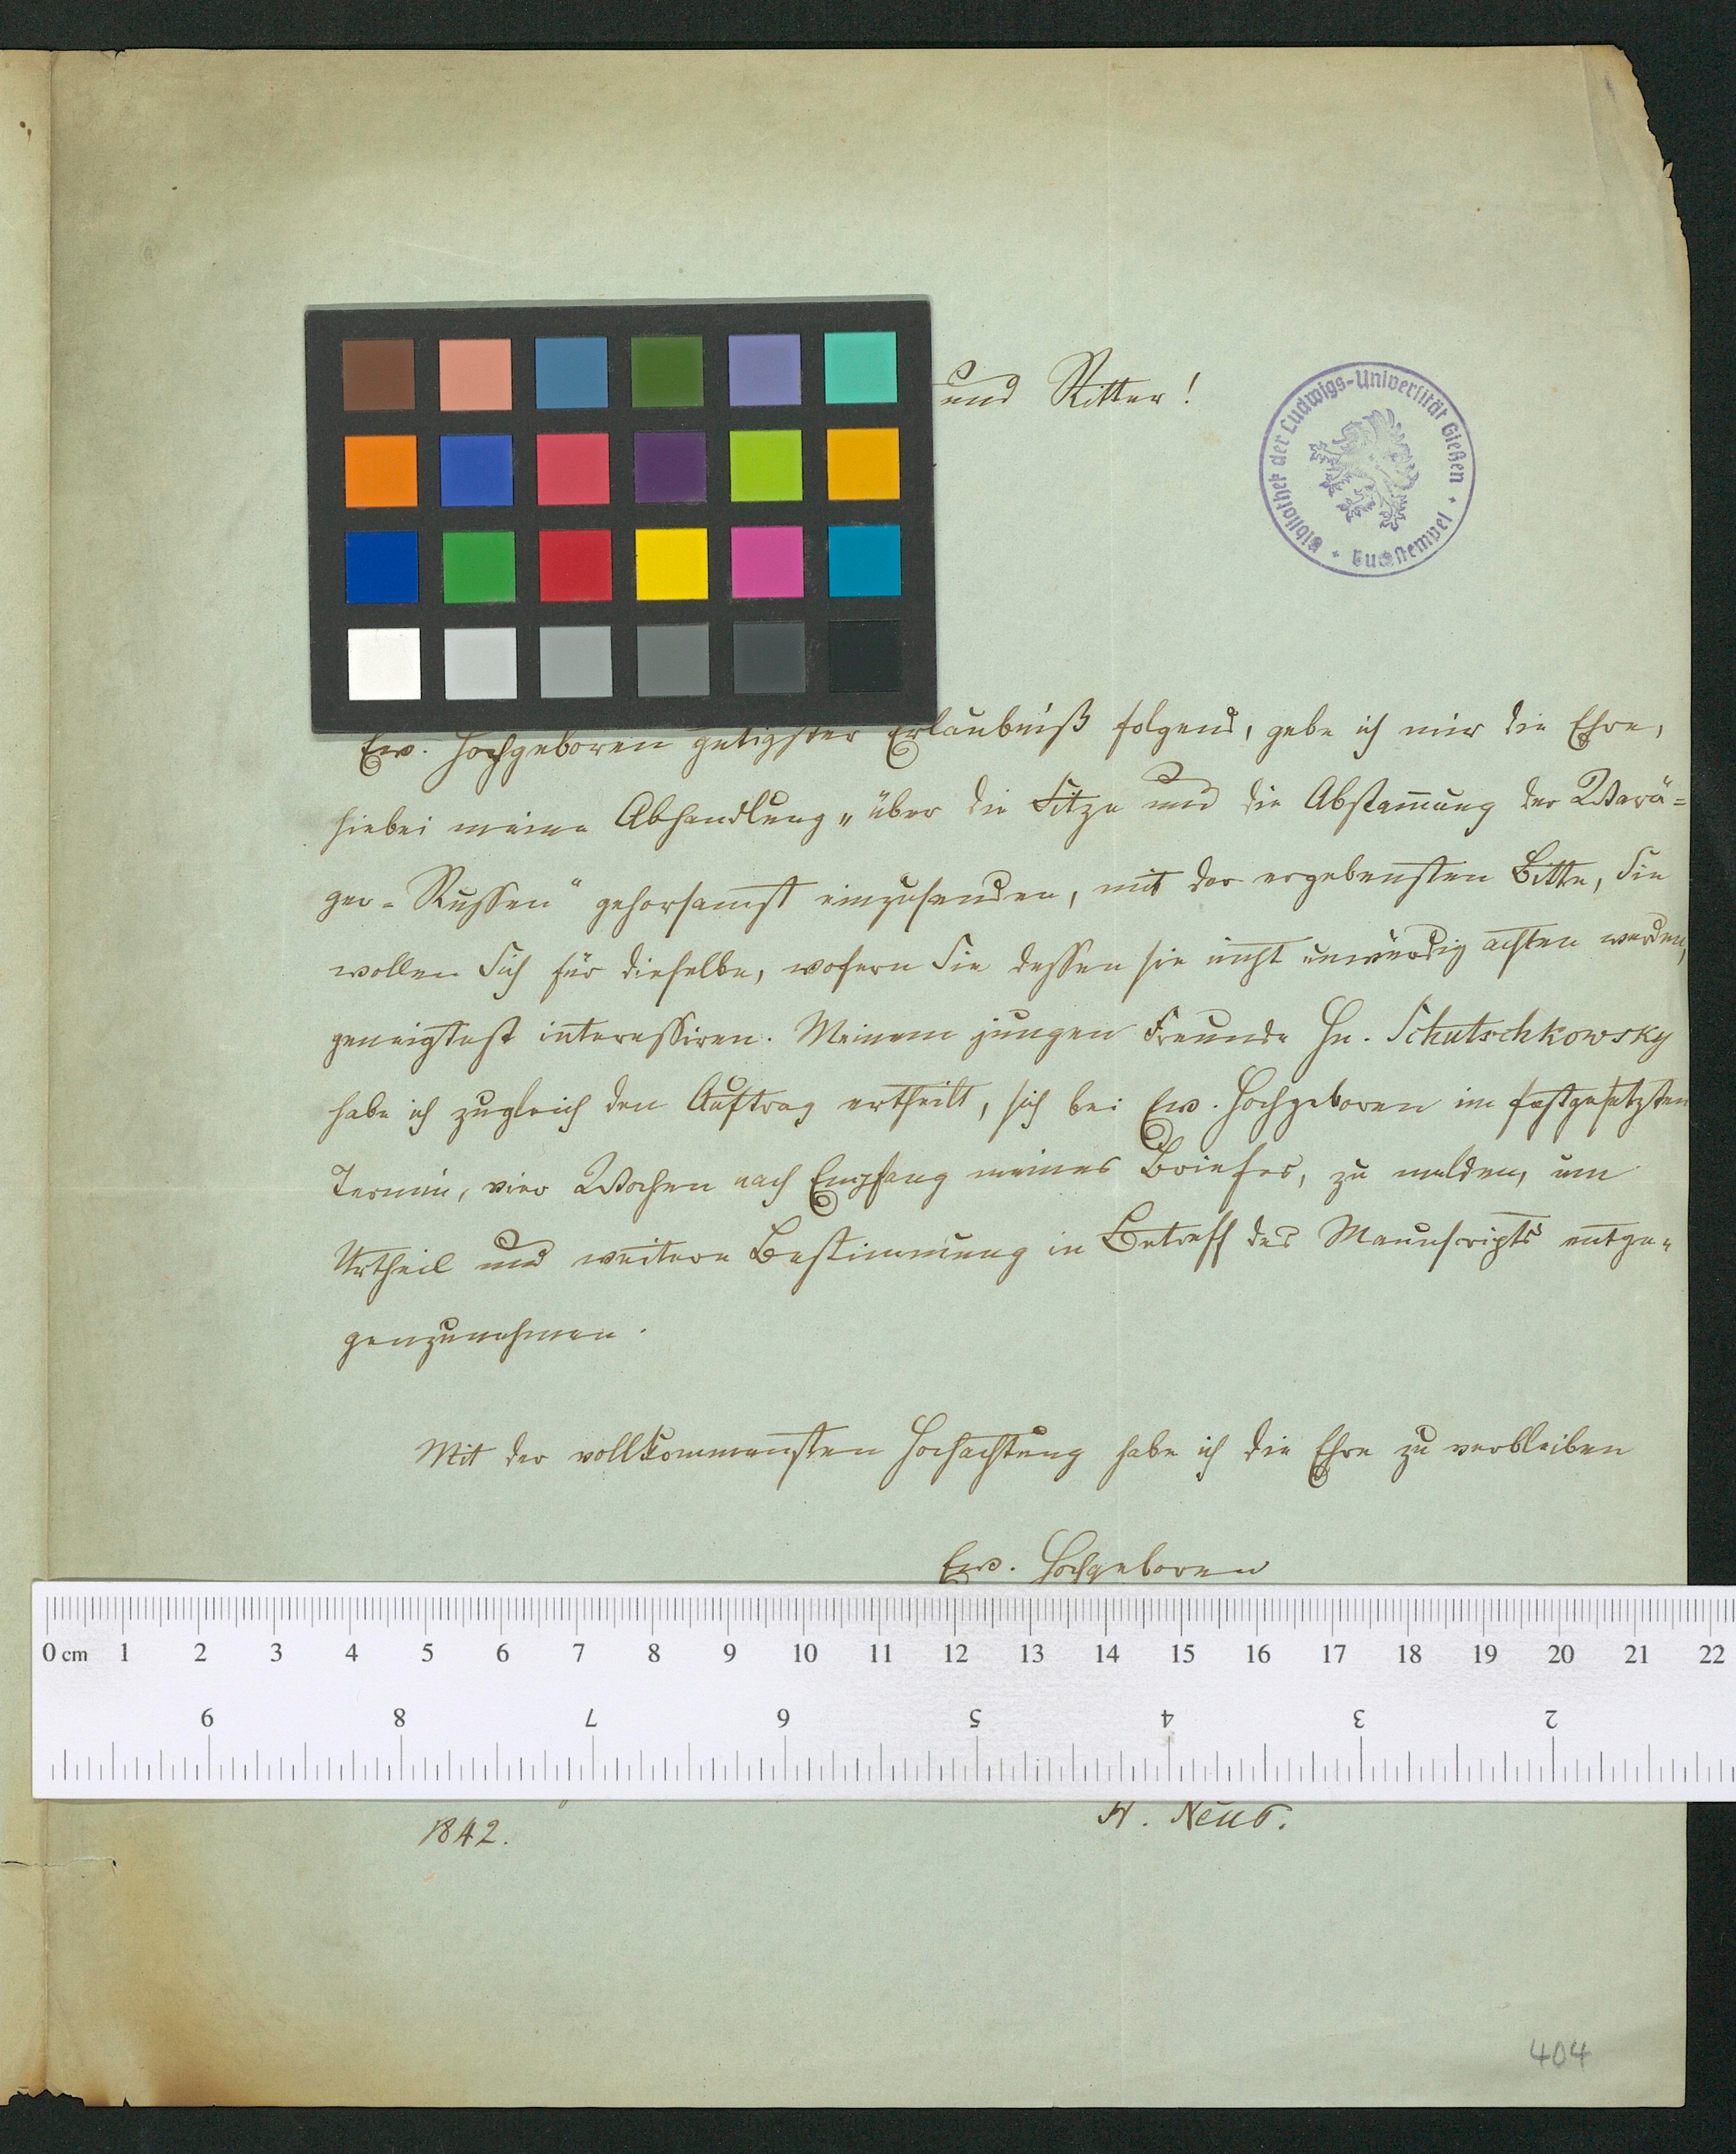 und Ritter!
Bibliothek der Ludwigs-Universität Gießen
Buchstempel
Ew. Hochgeboren gütigster Erlaubniß folgend, gebe ich mir die Ehre,
hiebei meine Abhandlung „über die Sitze und die Abstam̄ung der Warä=
ger-Russen“ gehorsamst einzusenden, mit der ergebensten Bitte, Sie
wollen Sich für dieselbe, wofern Sie dessen sie nicht unwürdig achten werden,
geneigtest interessiren. Meinem jungen Freunde Hn. Schutschkowsky
habe ich zugleich den Auftrag ertheilt, sich bei Ew. Hochgeboren im festgesetzten
Termin, vier Wochen nach Empfang meines Briefes, zu melden, um
Urtheil und weitere Bestimmung in Betreff des Manuscripts entge-
genzunehmen.
Mit der vollkommensten Hochachtung habe ich die Ehre zu verbleiben
Ew. Hochgeboren
0 cm 1 2 3 4 5 6 7 8 9 10 11 12 13 14 15 16 17 18 19 20 21 22
9 8 7 6 5 4 3 2
1842.
404